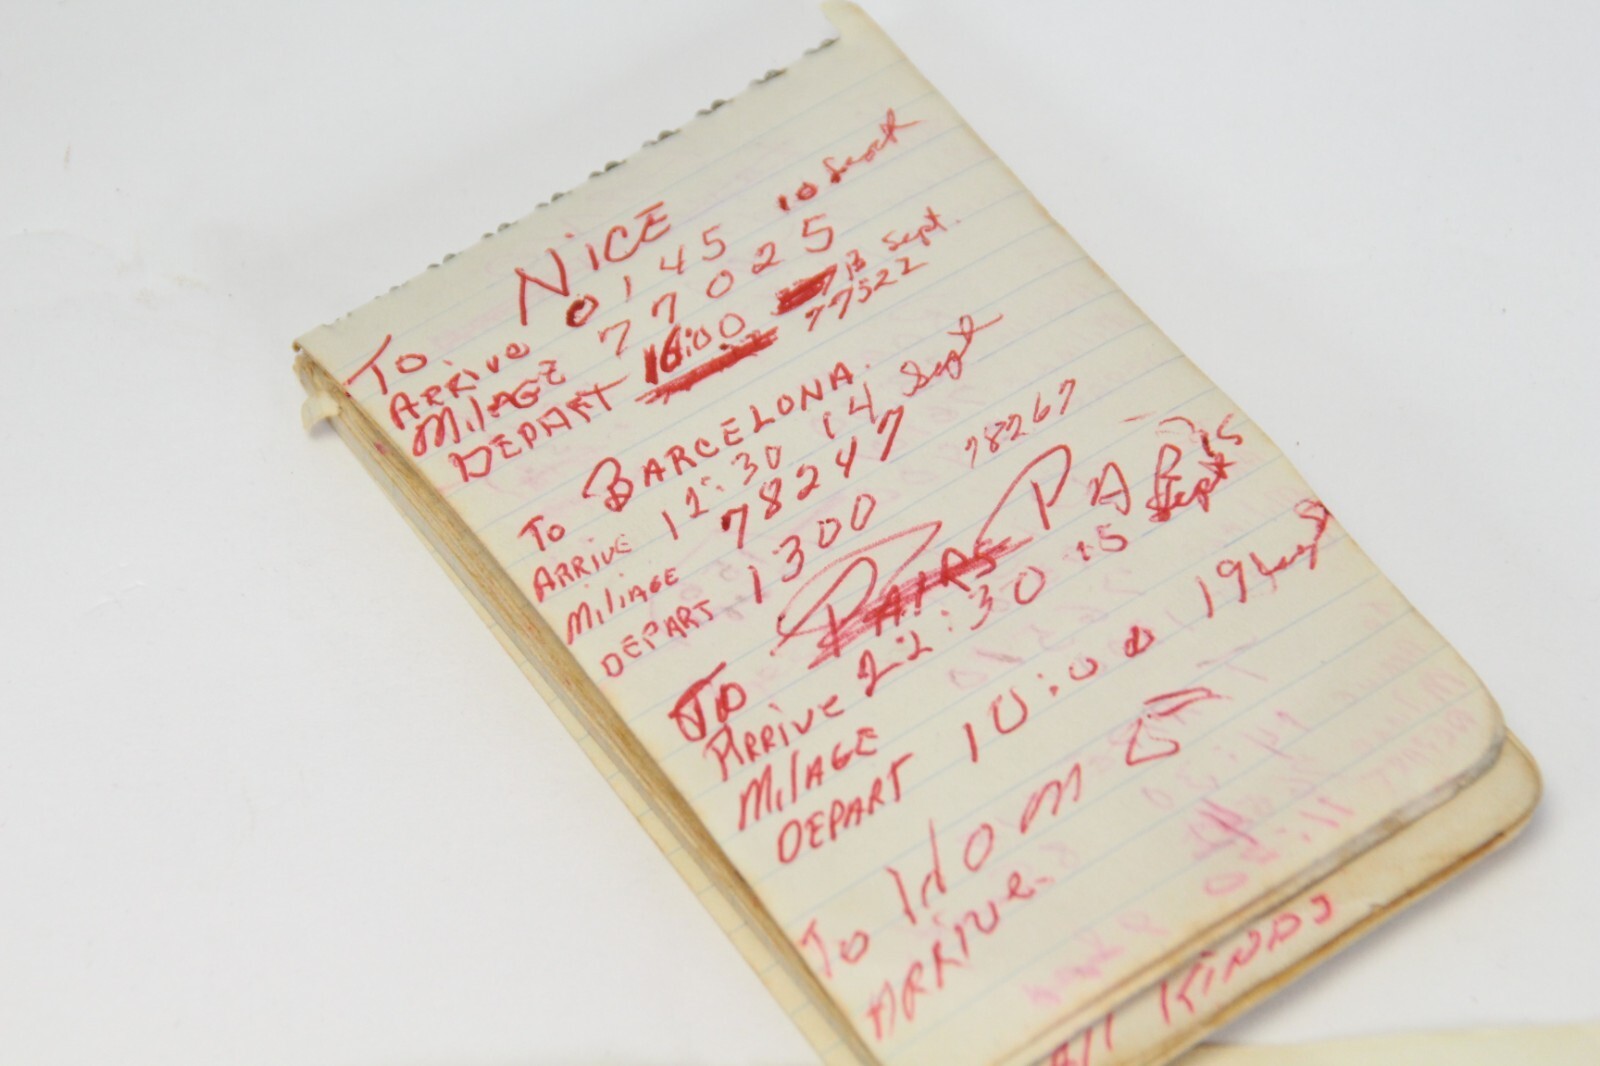 To NiCE
ARRive 0145 10 Sept
MilAGE 77025
DEPART 16:00 13 Sept.
77522
To BARCELONA.
ARRIVE 12:30 14 Sept
MiliAGE 78247
DEPART 1300 78267
To PAIRS PARis
ARRIVE 22:30 15 Sept
MilAGE
DEPART 10:00 19 Sept
To HOmE
ARRIVE.
KiNDS